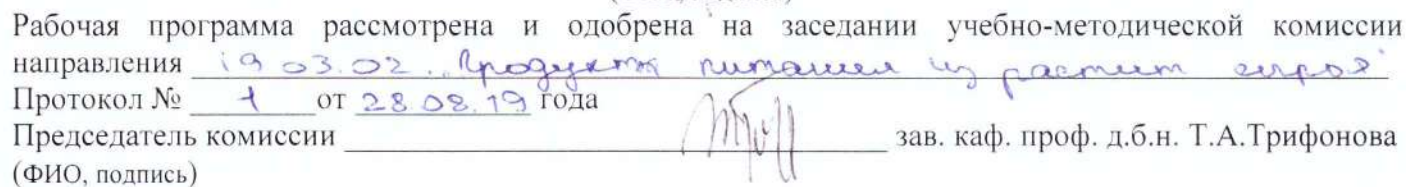 Рабочая программа рассмотрена и одобрена на заседании учебно-методической комиссии
направления 19.03.02. Продукты питания из растит сырья
Протокол № 1 от 28.08.19 года
Председатель комиссии зав. каф. проф. д.б.н. Т.А.Трифонова
(ФИО, подпись)